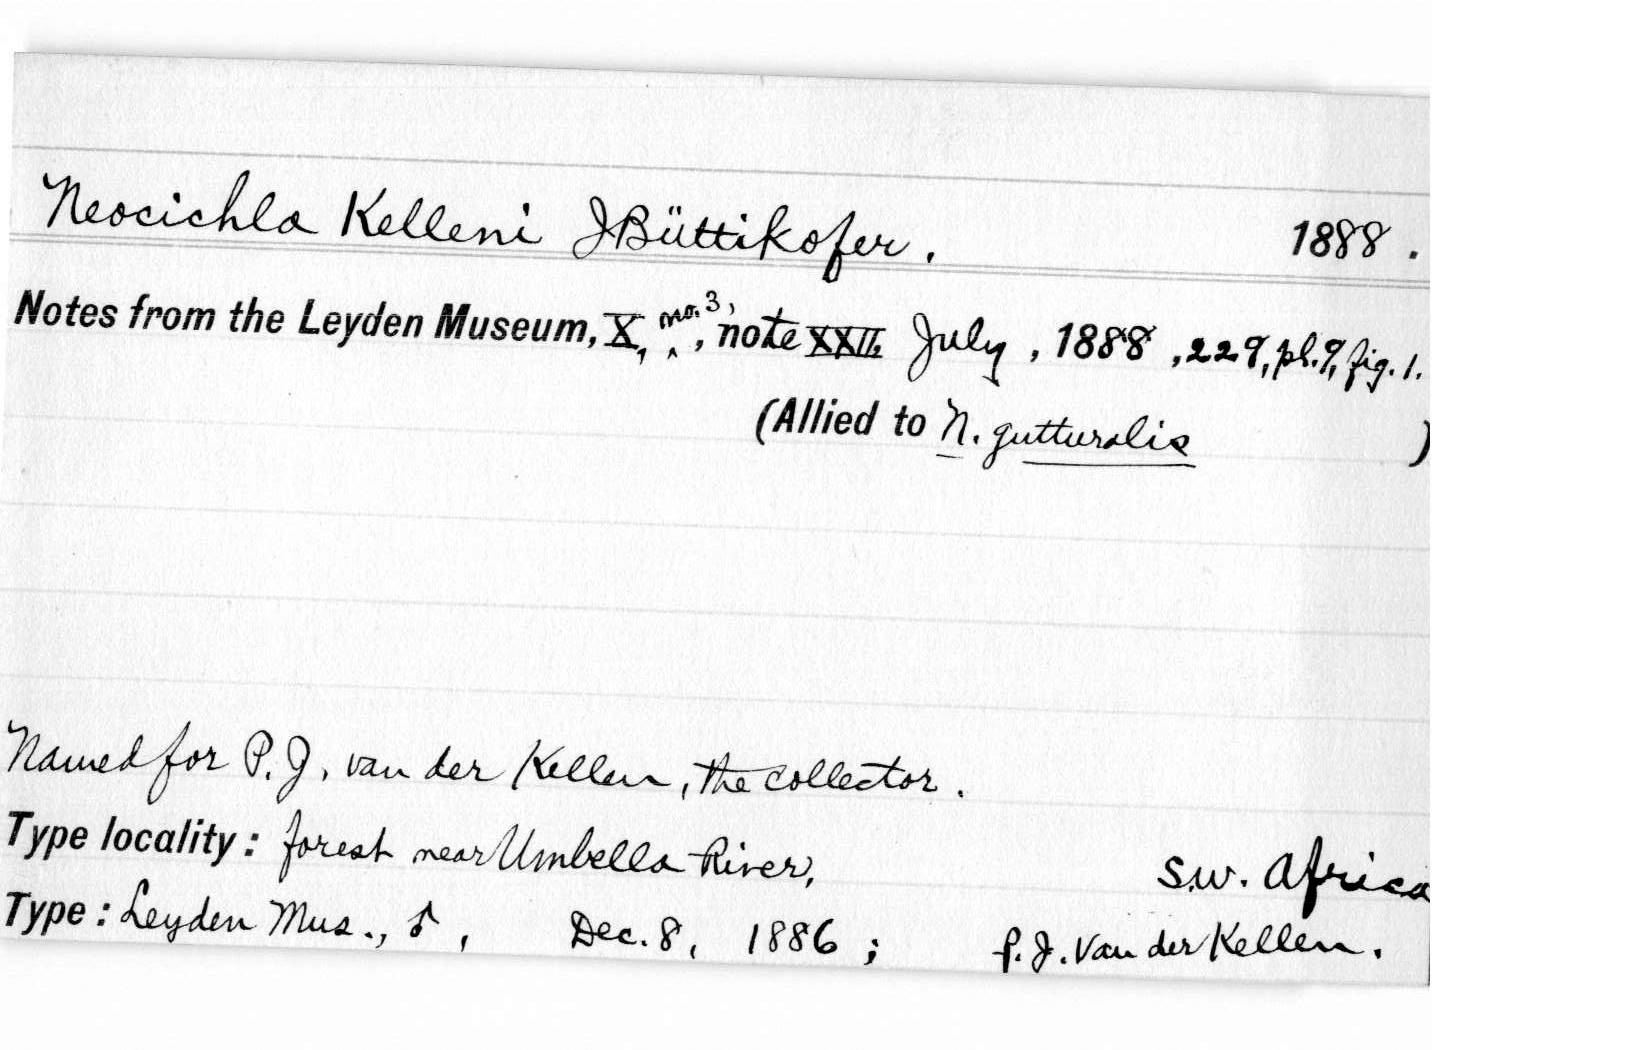 Neocichla Kelleni J Büttikofer. 1888.
Notes from the Leyden Museum, X, no. 3, , note XXII, July, 1888, 229, pl. 9, fig. 1.
(Allied to N. gutturalis )
Named for P. J. van der Kellen, the collector.
Type locality: forest near Umbella River, S.W. Africa
Type: Leyden Mus., ♂, Dec. 8, 1886; P. J. van der Kellen.